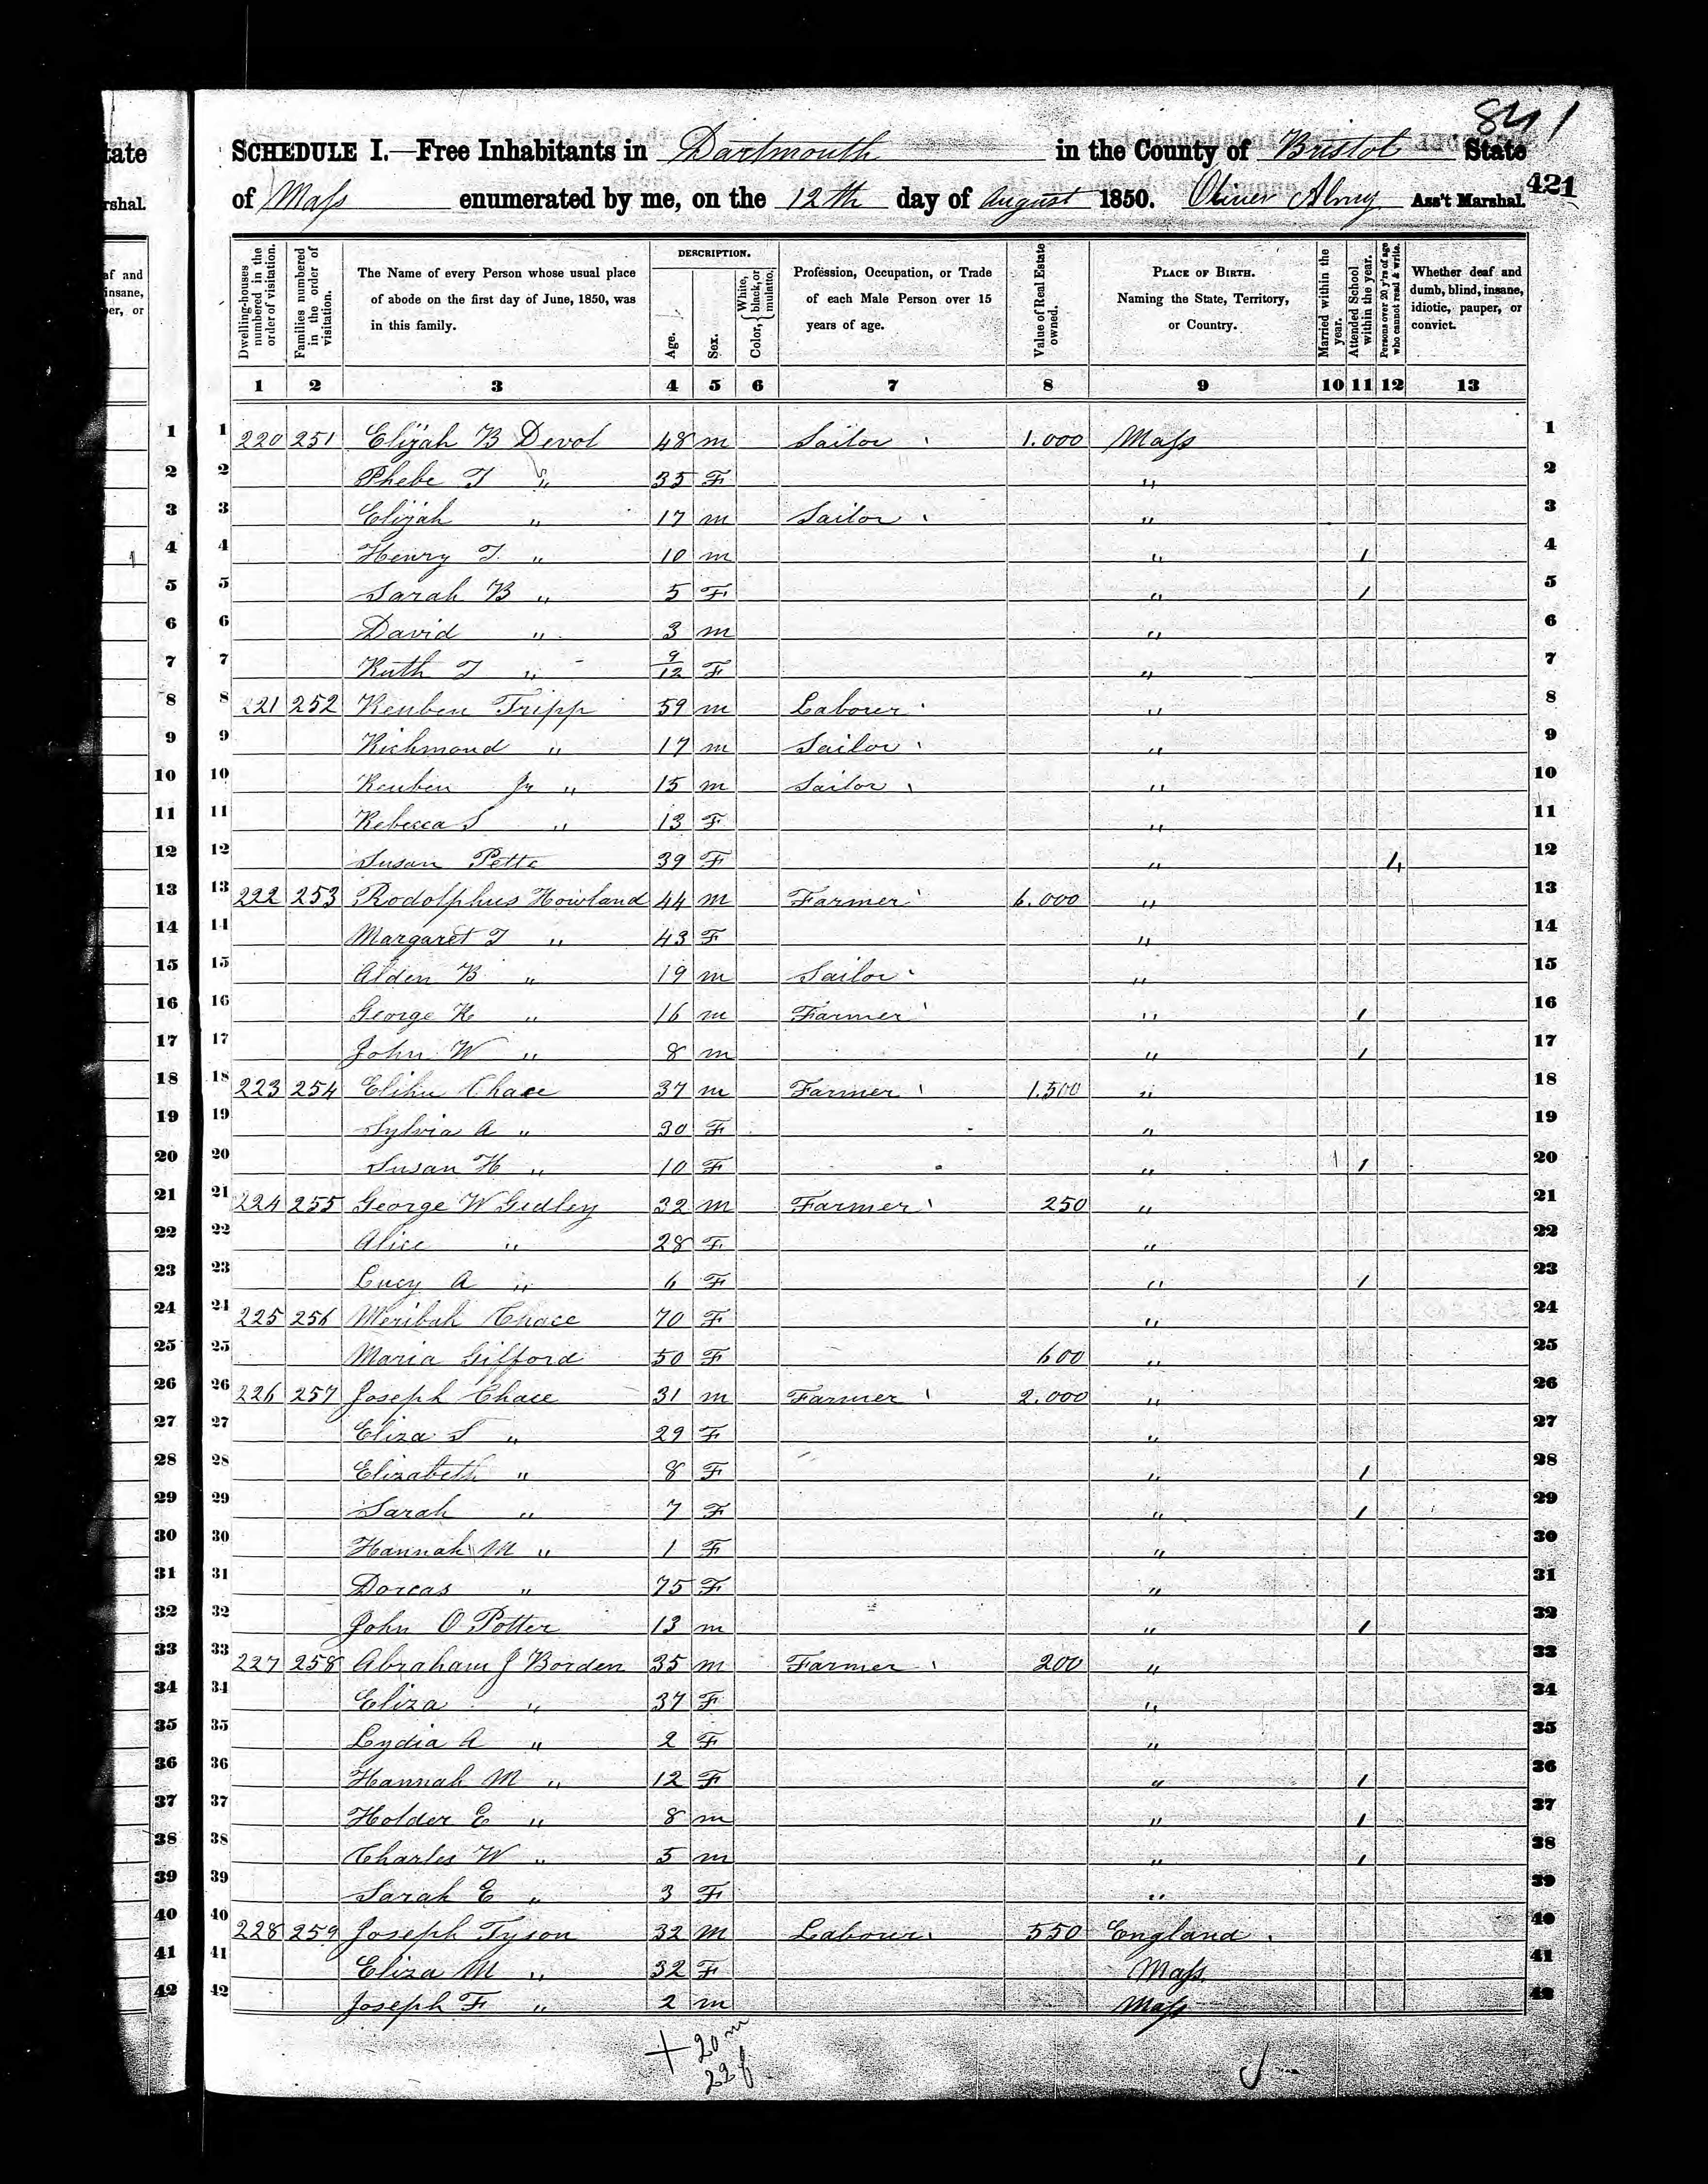 841
SCHEDULE I.—Free Inhabitants in Dartmouth in the County of Bristol State
of Mass enumerated by me, on the 12th day of August 1850. Oliver Almy Ass't Marshal.
421
Dwelling-houses numbered in the order of visitation.
Families numbered in the order of visitation.
The Name of every Person whose usual place of abode on the first day of June, 1850, was in this family.
DESCRIPTION.
Age.
Sex.
Color, { White, black, or mulatto.
Profession, Occupation, or Trade of each Male Person over 15 years of age.
Value of Real Estate owned.
PLACE OF BIRTH. Naming the State, Territory, or Country.
Married within the year.
Attended School within the year.
Persons over 20 y'rs of age who cannot read & write.
Whether deaf and dumb, blind, insane, idiotic, pauper, or convict.
1 2 3 4 5 6 7 8 9 10 11 12 13
1 220 251 Elijah B Devol 48 m Sailor 1.000 Mass 1
2 Phebe T " 35 F " 2
3 Elijah " 17 m Sailor " 3
4 Henry T. " 10 m " 1 4
5 Sarah B " 5 F " 1 5
6 David " 3 m " 6
7 Ruth T " 9/12 F " 7
8 221 252 Reuben Tripp 59 m Laborer " 8
9 Richmond " 17 m Sailor " 9
10 Reuben Jr " 15 m Sailor " 10
11 Rebecca S " 13 F " 11
12 Susan 39 F " 12
13 222 253 Rodolphus Howland 44 m Farmer 6.000 " 13
14 Margaret T " 43 F " 14
15 Alden B " 19 m Sailor " 15
16 George K " 16 m Farmer " 1 16
17 John W " 8 m " 1 17
18 223 254 Elihu Chace 37 m Farmer 1.500 " 18
19 Sylvia A " 30 F " 19
20 Susan H " 10 F " 1 20
21 224 255 George W Gidley 32 m Farmer 250 " 21
22 Alice " 28 F " 22
23 Lucy A " 6 F " 1 23
24 225 256 Meribah Chace 70 F " 24
25 Maria Gifford 50 F 600 " 25
26 226 257 Joseph Chace 31 m Farmer 2.000 " 26
27 Eliza S " 29 F " 27
28 Elizabeth " 8 F " 1 28
29 Sarah " 7 F " 1 29
30 Hannah M " 1 F " 30
31 Dorcas " 75 F " 31
32 John O Potter 13 m " 1 32
33 227 258 Abraham J Borden 35 m Farmer 200 " 33
34 Eliza " 37 F " 34
35 Lydia A " 2 F " 35
36 Hannah M " 12 F " 1 36
37 Holder E " 8 m " 1 37
38 Charles W " 5 m " 1 38
39 Sarah E " 3 F " 39
40 228 259 Joseph Tyson 32 m Laborer 550 England 40
41 Eliza M " 32 F Mass 41
42 Joseph F " 2 m Mass 42
20 m
22 f